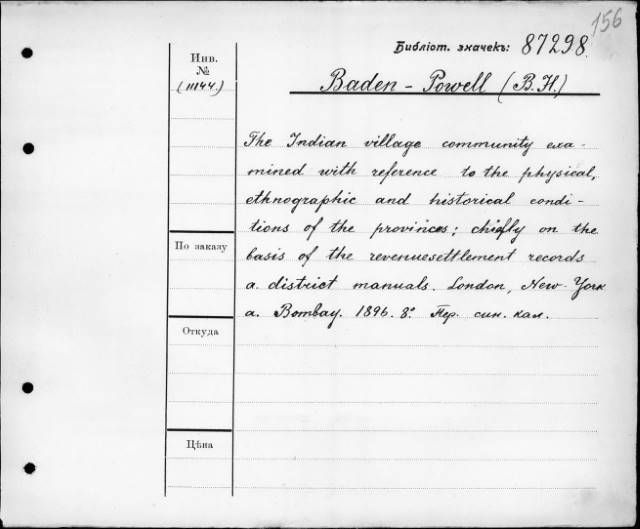 156
Библіот. значекъ: 87298.
Инв.
№
(11144.)
Baden-Powell (B.H.)
The Indian village community exa-
mined with reference to the physical,
ethnographic and historical condi-
tions of the provinces; chiefly on the
basis of the revenuesettlement records
a. district manuals. London, New-York
a. Bombay. 1896. 8°. Пер. син. кал.
По заказу
Откуда
Цѣна